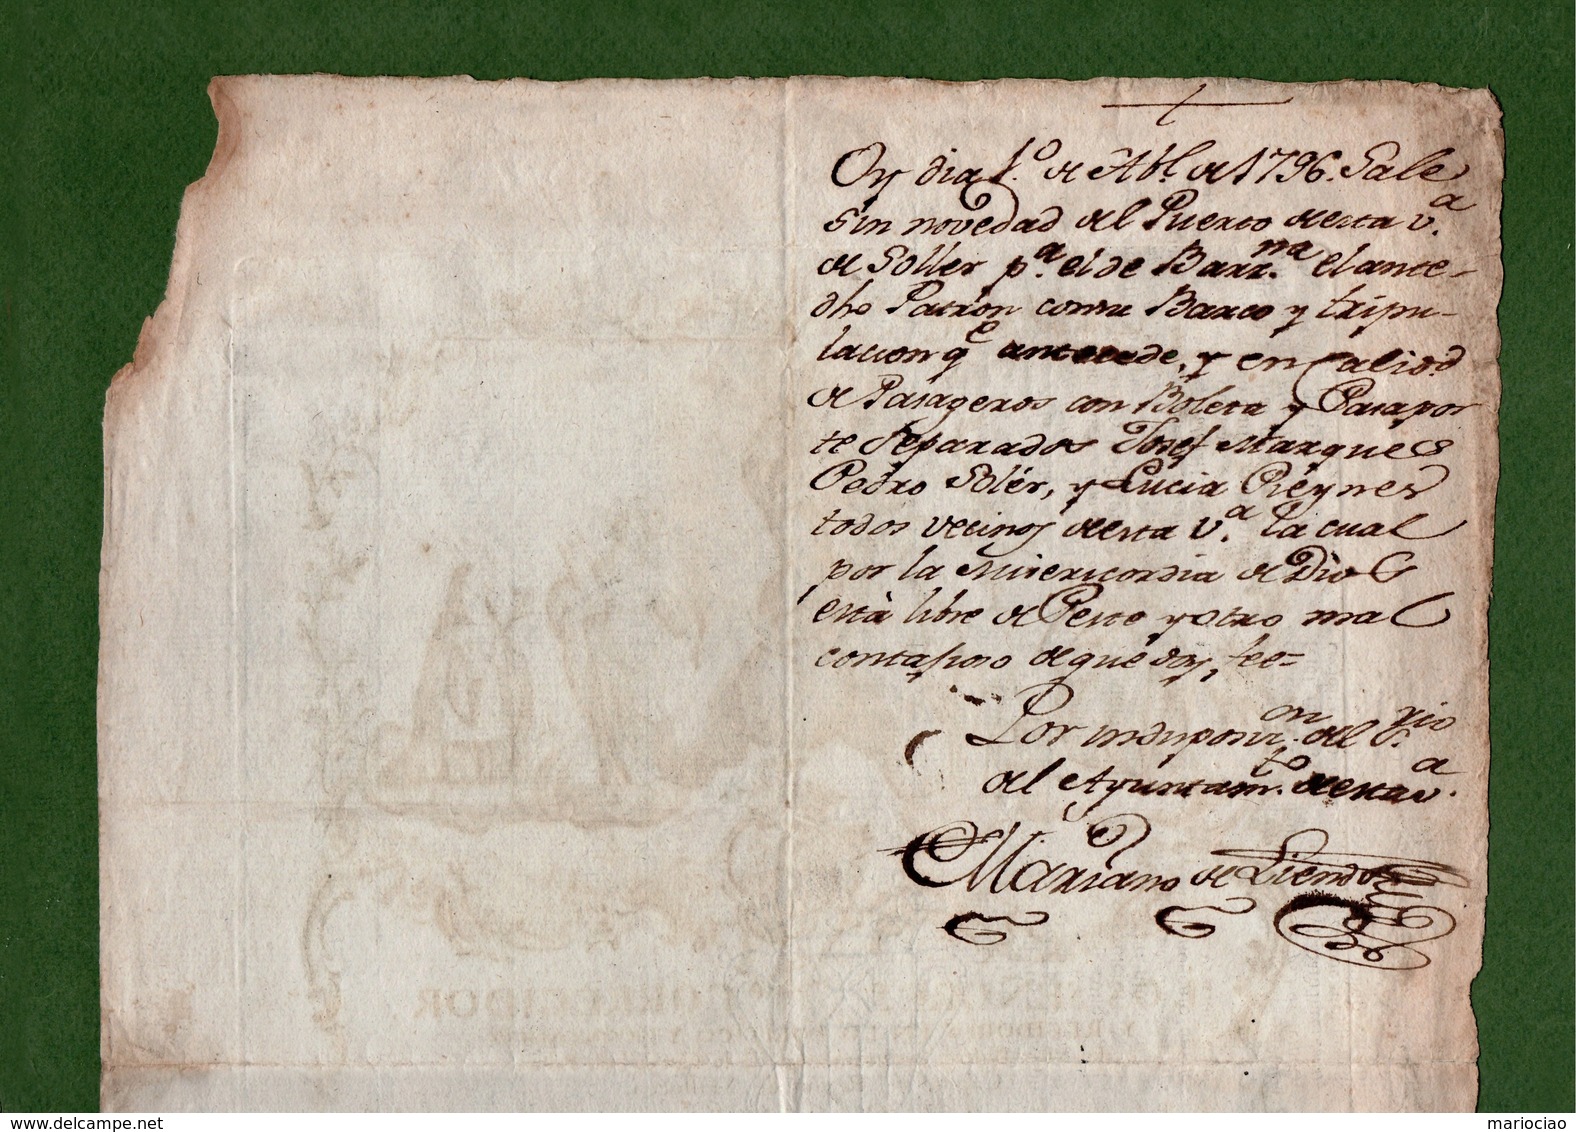 Oy dia 1.º de Abl. de 1796. Sale
sin novedad del Puerto desta v.ª
de Soller p.ª el de Barz.na el ante-
dho Patron con su Barco y tripu-
lacion q.e antecede, y en calid.d
de Pasageros con Boleta y Pasapor
te separados Josef Marques
Pedro Solér, y Lucia Reÿnes
todos vecinos desta V.ª la cual
por la Misericordia de Dios
està libre de Peste y otro mal
contagioso de que doy, fee=
Por indisposin.on del S.rio
del Ayuntam.to desta v.ª
Mariano de Liendo
CORREGIDOR
delcampe.net
mariociao